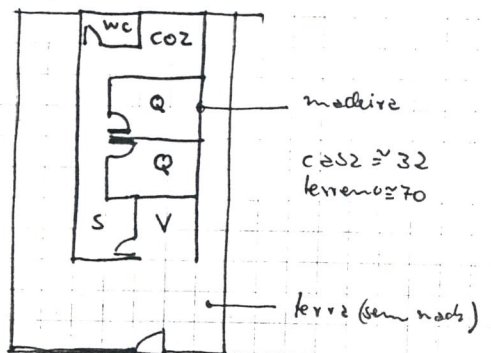 WC
COZ
Q
madeira
Q
casa ≅ 32
terreno ≅ 70
S V
terra (sem nada)